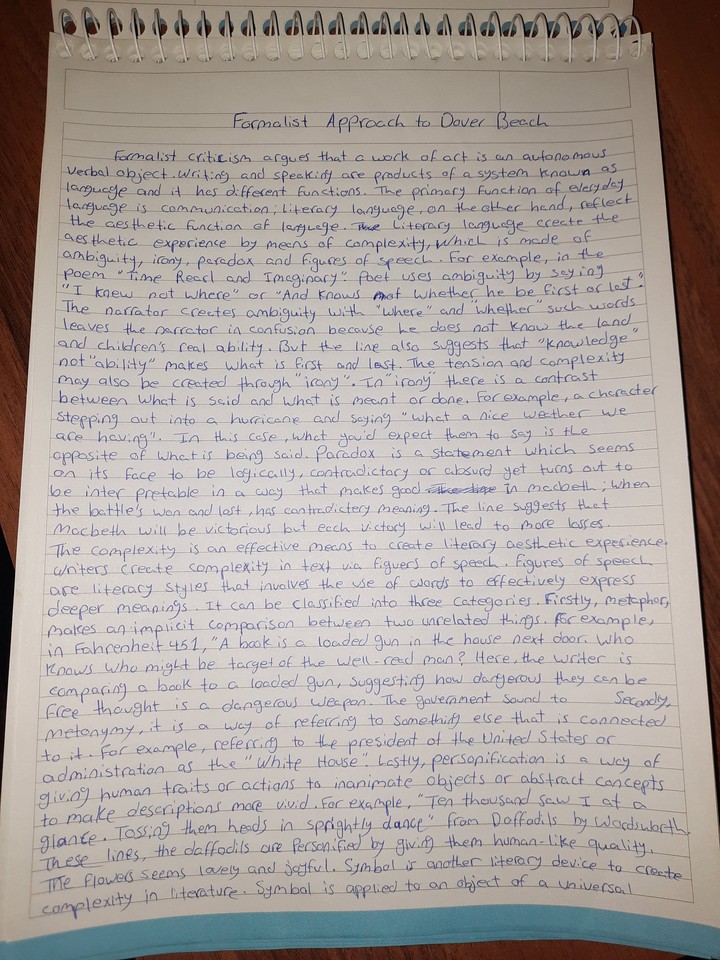 Formalist Approach to Dover Beach
Formalist criticism argues that a work of art is an autonomous
verbal object. Writing and speaking are products of a system known as
language and it has different functions. The primary function of everyday
language is communication; literary language, on the other hand, reflect
the aesthetic function of language. Literary language create the
aesthetic experience by means of complexity, which is made of
ambiguity, irony, paradox and figures of speech. For example, in the
poem "Time Rearl and Imaginary". Poet uses ambiguity by saying
"I knew not where" or "And knows not whether he be first or last".
The narrator creates ambiguity with "where" and "whether" such words
leaves the narrator in confusion because he does not know the land
and children's real ability. But the line also suggests that "knowledge"
not "ability" makes what is first and last. The tension and complexity
may also be created through "irony". In "irony" there is a contrast
between what is said and what is meant or done. For example, a character
stepping out into a hurricane and saying "what a nice weather we
are having". In this case, what you'd expect them to say is the
opposite of what is being said. Paradox is a statement which seems
on its face to be logically, contradictory or absurd yet turns out to
be inter pretable in a way that makes good In macbeth; when
the battle's won and lost, has contradictery meaning. The line suggests that
Macbeth will be victorious but each victory will lead to more losses.
The complexity is an effective means to create literary aesthetic experience.
Writers create complexity in text via figuers of speech. Figures of speech
are literary styles that involves the use of words to effectively express
deeper meanings. It can be classified into three categories. Firstly, metaphor,
makes an implicit comparison between two unrelated things. For example,
in Fahrenheit 451, "A book is a loaded gun in the house next door. Who
knows who might be target of the well-read man? Here, the writer is
comparing a book to a loaded gun, suggesting how dangerous they can be
free thought is a dangerous weapon. The government sound to Secondly,
metonymy, it is a way of referring to something else that is connected
to it. For example, referring to the president of the United States or
administration as the "White House". Lastly, personification is a way of
giving human traits or actions to inanimate objects or abstract concepts
to make descriptions more vivid. For example, "Ten thousand saw I at a
glance. Tossing them heads in sprightly dance" from Daffodils by Wordsworth.
These lines, the daffodils are personified by giving them human-like quality.
The flowers seems lovely and joyful. Symbol is another literary device to create
complexity in literature. Symbol is applied to an object of a universal